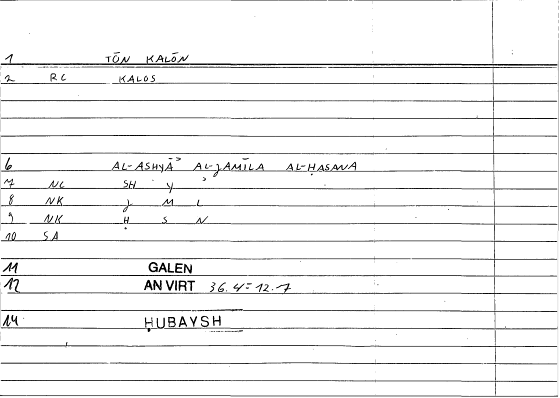 1 TŌN KALŌN
2 RC KALOS
6 AL-ASHYĀʾ AL-JAMĪLA AL-ḤASANA
7 NC SH Y ʾ
8 NK J M L
9 NK Ḥ S N
10 SA
11 GALEN
12 AN VIRT 36.4=12.7
14 ḤUBAYSH